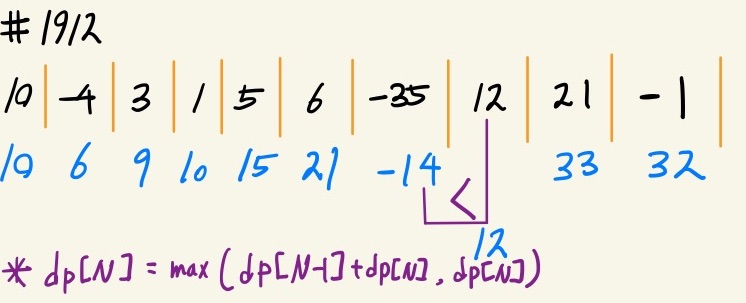 #1912
10 -4 3 1 5 6 -35 12 21 -1
10 6 9 10 15 21 -14 33 32
<
12
* dp[N] = max(dp[N-1]+dp[N], dp[N])